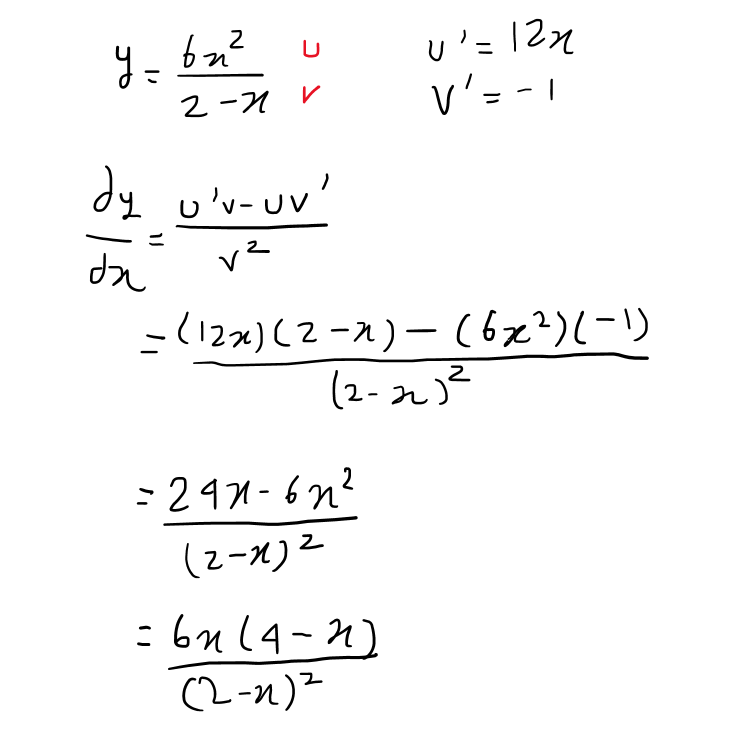 y = 6x²/(2-x) u v u' = 12x
v' = -1
dy/dx = (u'v - uv')/v²
= ((12x)(2-x) - (6x²)(-1))/(2-x)²
= (24x - 6x²)/(2-x)²
= 6x(4-x)/(2-x)²